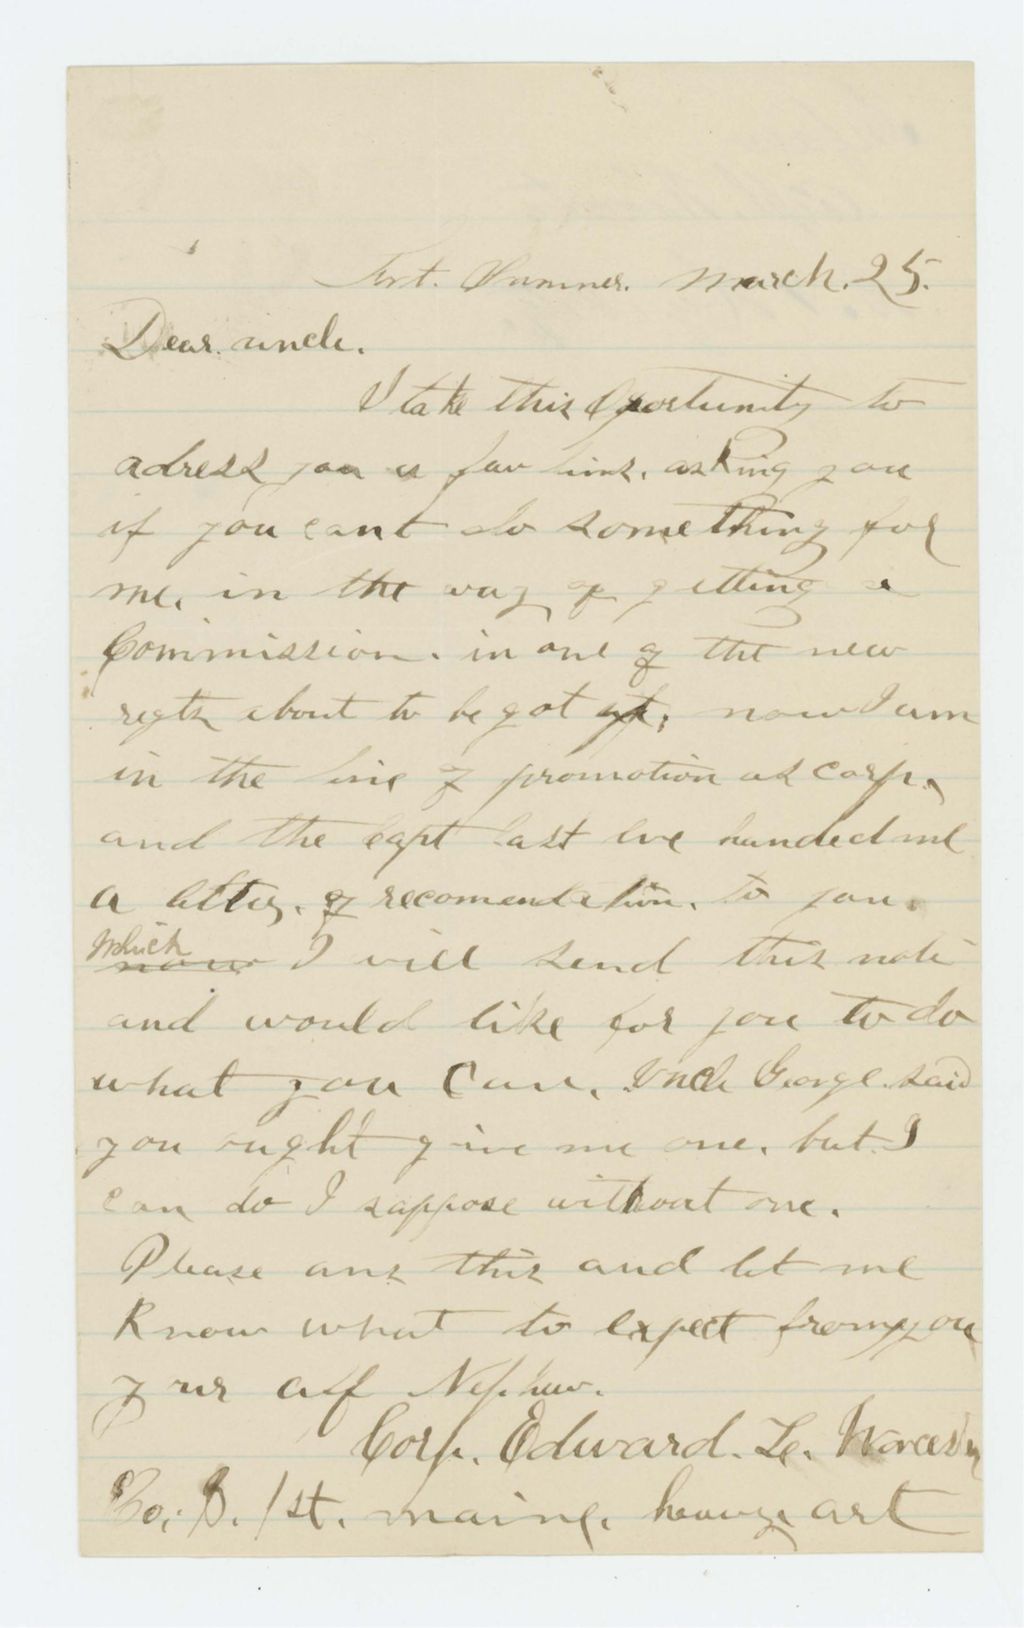 Fort. Sumner. march. 25.
Dear. uncle.
I take this Oportunity to
adress you a faw lins. asking you
if you cant do something for
me. in the way of getting a
Commission. in one of the new
regts about to be got up. now I am
in the line of promotion as corp.
and the capt last eve handed me
a letter. of recomendation. to you.
which
now I will send this note
and would like for you to do
what you can. Uncle George. said
you ought give me one. but I
can do I suppose without one.
Please ans this and let me
Know what to expect from you
your aff Nephew.
Corp. Edward. L. Worcester
Co. B. 1st. maine. heavy art